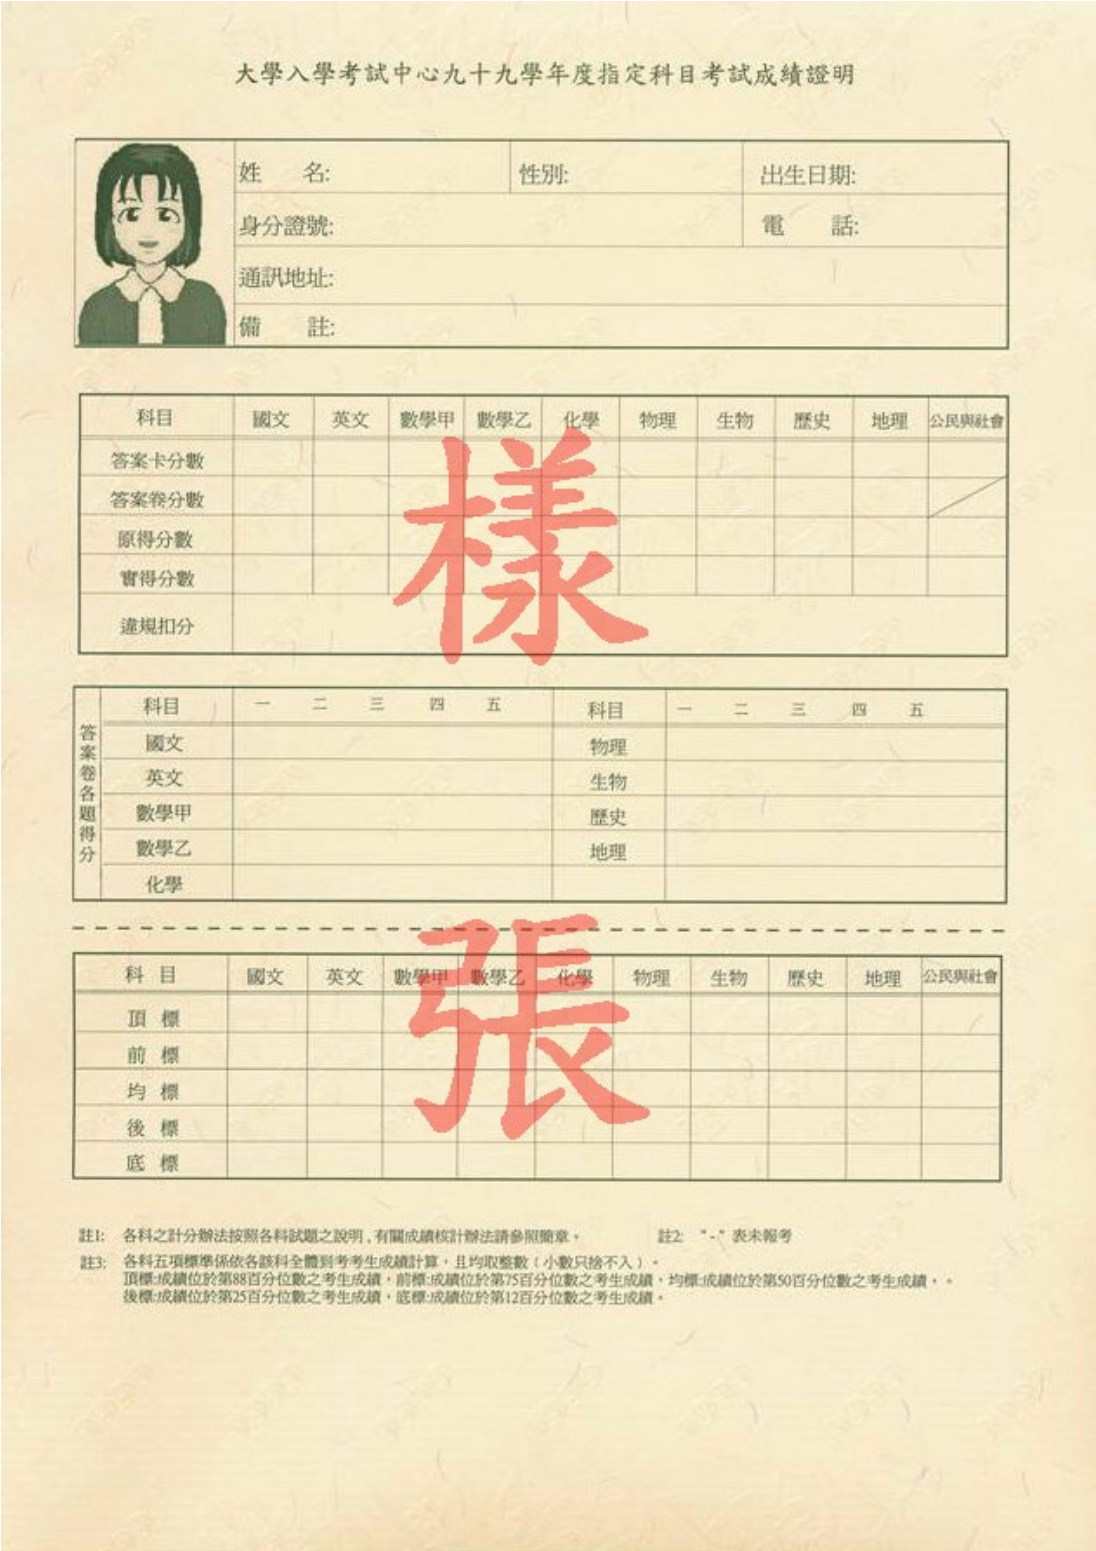 大學入學考試中心九十九學年度指定科目考試成績證明
姓 名: 性別: 出生日期:
身分證號: 電 話:
通訊地址:
備 註:
科目 國文 英文 數學甲 數學乙 化學 物理 生物 歷史 地理 公民與社會
答案卡分數
答案卷分數
原得分數
實得分數
違規扣分
樣
答案卷各題得分
科目 一 二 三 四 五 科目 一 二 三 四 五
國文 物理
英文 生物
數學甲 歷史
數學乙 地理
化學
張
科 目 國文 英文 數學甲 數學乙 化學 物理 生物 歷史 地理 公民與社會
頂 標
前 標
均 標
後 標
底 標
註1: 各科之計分辦法按照各科試題之說明,有關成績核計辦法請參照簡章。 註2: "-"表未報考
註3: 各科五項標準係依各該科全體到考考生成績計算,且均取整數(小數只捨不入)。
頂標:成績位於第88百分位數之考生成績,前標:成績位於第75百分位數之考生成績,均標:成績位於第50百分位數之考生成績,。
後標:成績位於第25百分位數之考生成績,底標:成績位於第12百分位數之考生成績。